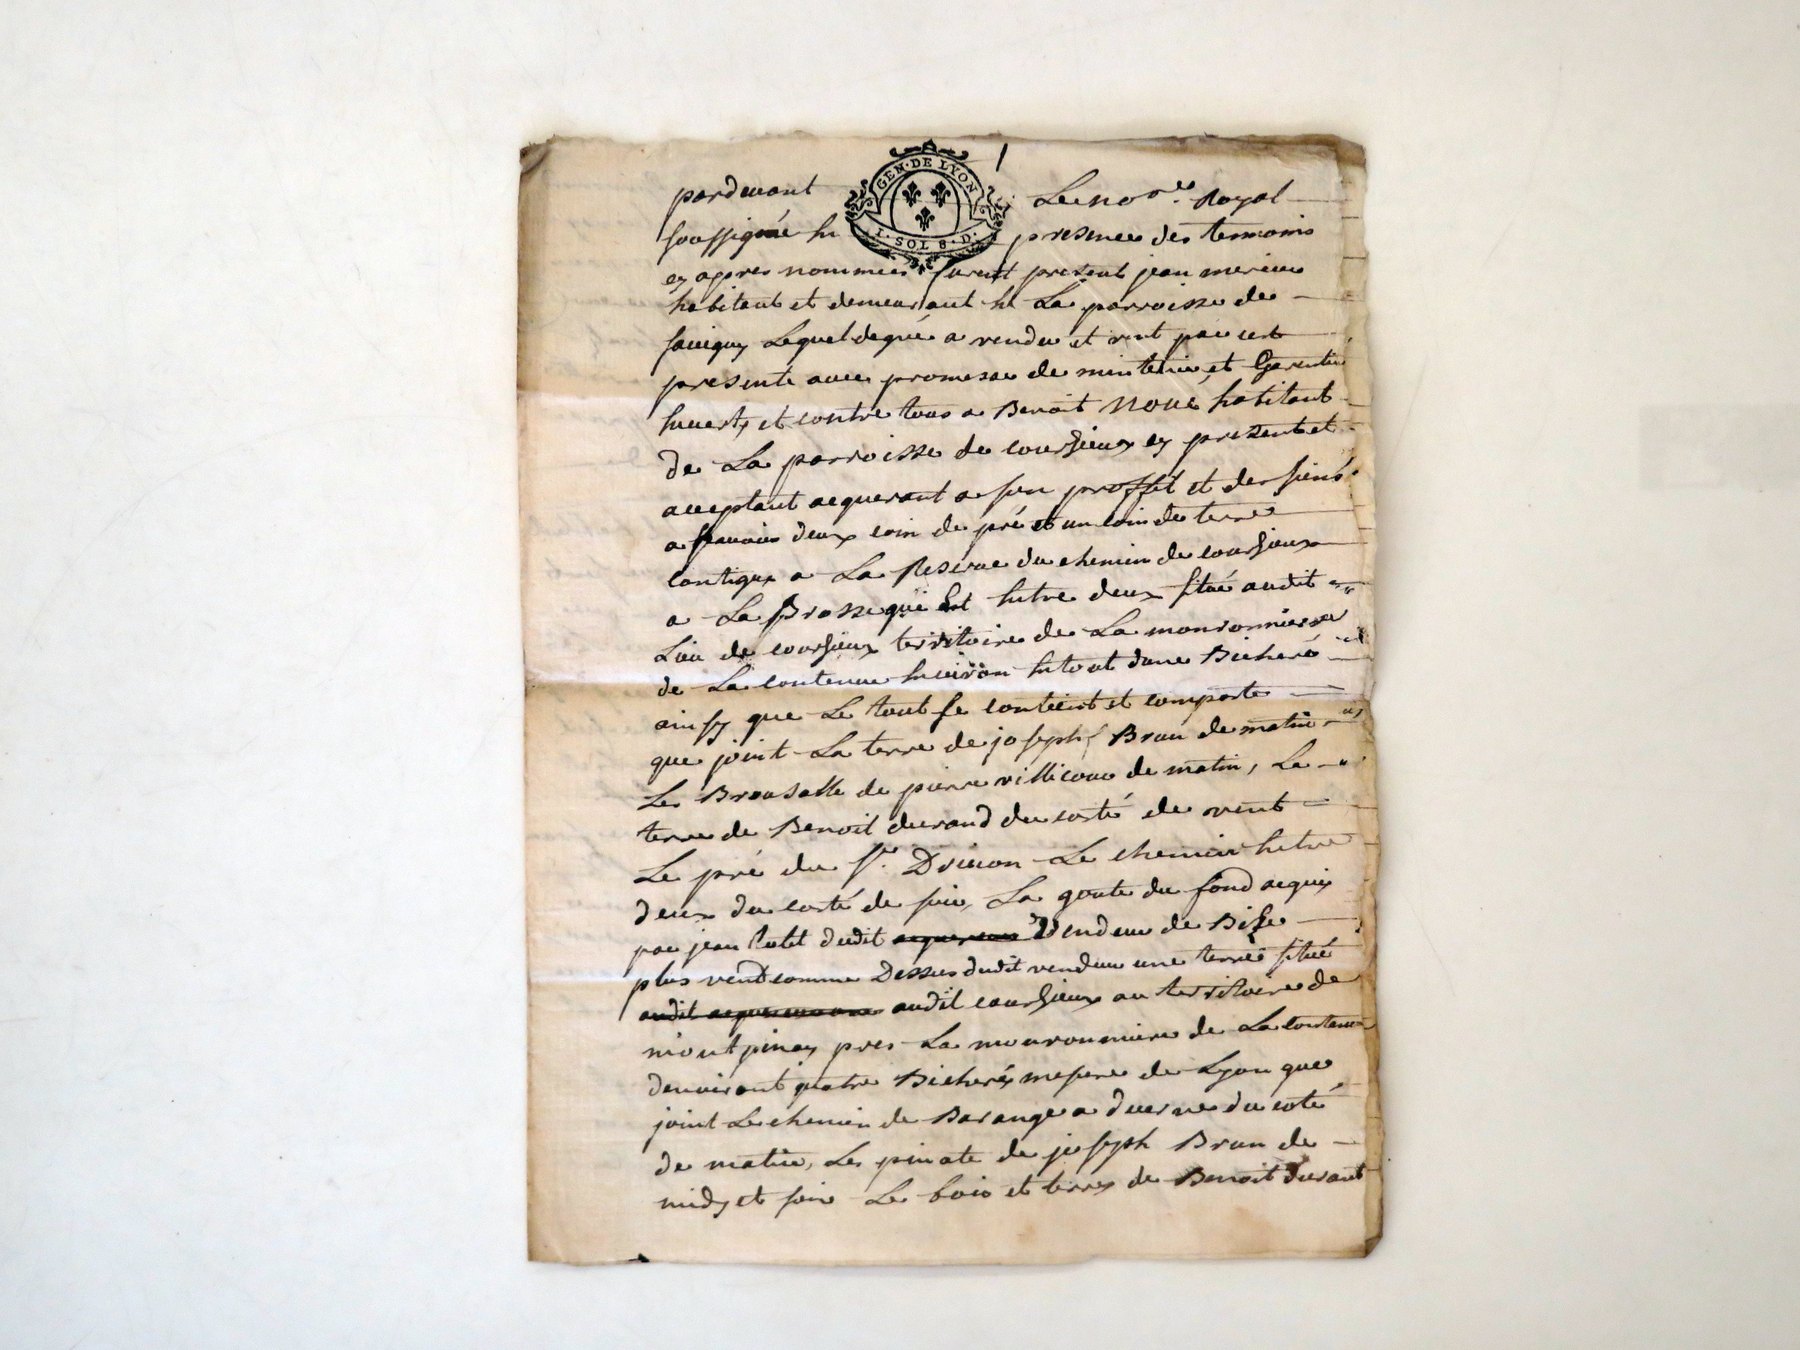 GEN·DE LYON
I·SOL 8·D·
pardevant Le no.re Royal
soussigné en presence des temoins
cy apres nommees furent present jean merieu
habitant et demeurant en La parroisse de
savigny Lequel de gré a vendu et vent par cest
presente avec promesse de mintenir et Garentir
envert et contre tous a Benoit Noué habitant
de La parroisse de coursieux cy present et
acceptant acquerant a son proffit et des siens
a scavoir deux coin de pré et un coin de terre
contigux a La Reserve du chemin de coursieux
a La Brosse qui Est entre deux situé audit
Lieu de coursieux territoire de La mouronniere
de La contenue environ en tout dune Bicheré
ainsy que Le tout se contient et comporte
que joint La terre de joseph Brun de matin
Les Brousalle de pierre de matin, La
terre de Benoit durand du costé de vent
Le pré du Sr. Le chemin entre
deux du costé de soir, La goute du fond acquis
par jean dudit acquereur Vendeur de Bise
plus vend comme Dessus ledit vendeur une terre situé
audit acquereur audit coursieux au territoire de
montpinay pres La mouronniere de La contenue
denviront quatre Bicherés mesure de Lyon que
joint Le chemin de Barange a duerne du coté
de matin, Les pinate de joseph Brun de
midy et soir Le bois et terres de Benoit durant